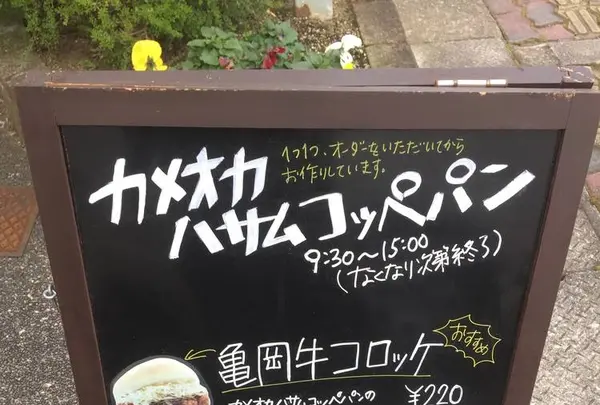 1つ1つ、オーダーをいただいてから
お作りしています。
カメオカ
ハサムコッペパン
9:30〜15:00
(なくなり次第終了)
おすすめ
亀岡牛コロッケ
カメオカハサムコッペパンの
¥220